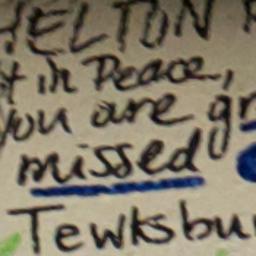 HELTON
in Peace,
you are
missed
Tewksbu